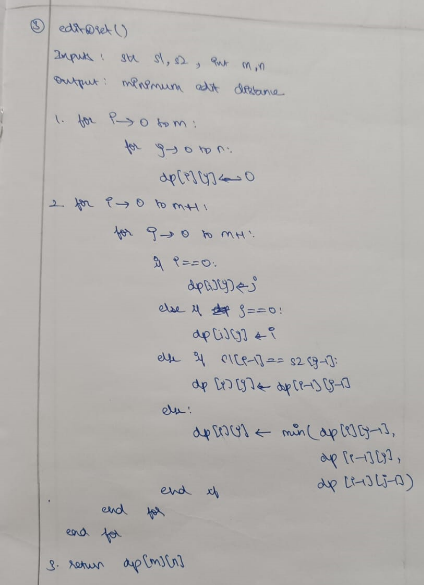 ③ editDist()
Inputs : str s1, s2 , int m,n
Output : minimum edit distance
1. for i→0 to m:
for j→0 to n:
dp[i][j]←0
2. for i→0 to m+1:
for j→0 to m+1:
if i==0:
dp[i][j]←j
else if j==0:
dp[i][j]←i
else if s1[i-1]== s2[j-1]:
dp[i][j]← dp[i-1][j-1]
else:
dp[i][j] ← min( dp[i][j-1],
dp[i-1][j],
dp[i-1][j-1])
end if
end for
end for
3. return dp[m][n]